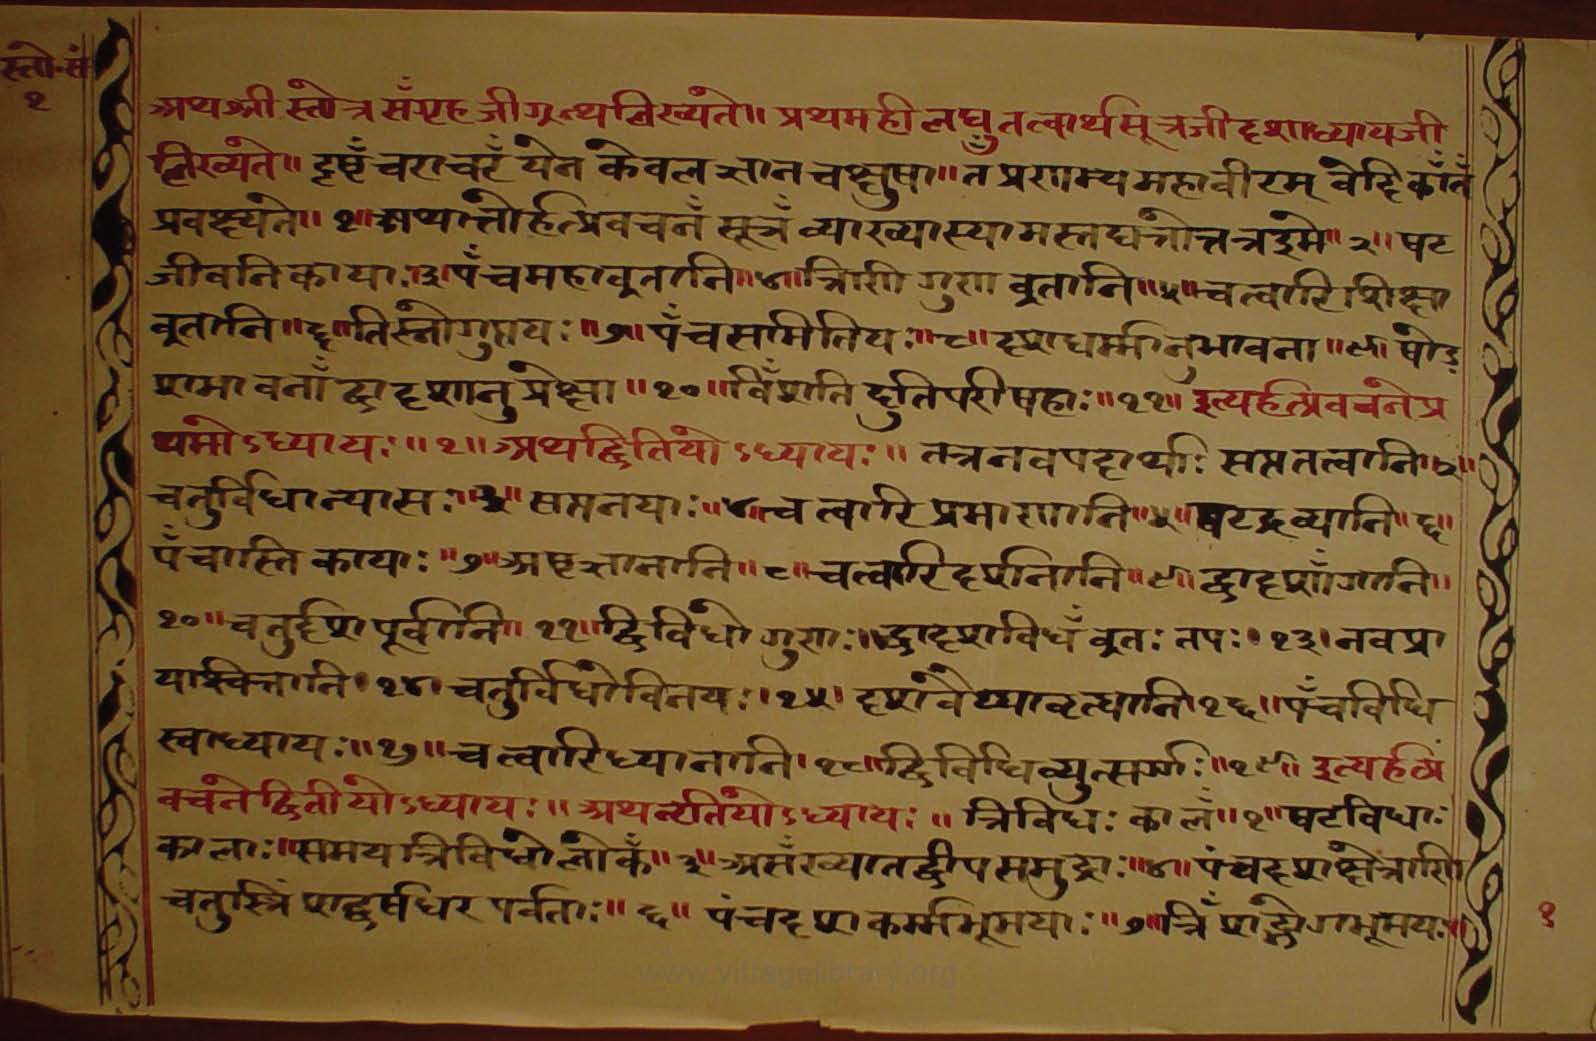 स्तो-सं
१
अथ श्री स्तोत्र सँग्रह जी ग्रन्थ लिख्यंते॥ प्रथमही लघु तत्वार्थसूत्रजी दृशाध्यायजी
लिख्यंते॥ दृष्टँ चराचरँ येन केवल ज्ञान चक्षुषा॥ तँ प्रणाम्य महावीरम् वेदिकाँतँ
प्रवक्ष्यते॥१॥अथातो र्हत्प्रवचनँ सूत्रँ व्याख्यास्यामस्तद्यंतोत्तत्रइमे॥२॥षट
जीवनिकायाः॥३॥पँचमहाव्रतानि॥४॥त्रिणी गुण व्रतानि॥५॥चत्वारि शिक्षा
व्रतानि॥६॥तिस्नोगुप्तयः॥७॥पँचसमितियः॥८॥दृशधर्म्मानुभावना॥९॥षोड
शभावनाँ द्वादृशानुप्रेक्षा॥१०॥विँशति द्वुतिपरीषहाः॥११॥इत्यर्हत्प्रवचंने प्र
थमोऽध्यायः॥१॥अथद्वितियोऽध्यायः॥ तत्रनवपदार्थाः सप्ततत्वानि॥२॥
चतुर्विधान्यासः॥३॥सप्तनयाः॥४॥चत्वारि प्रमाणानि॥५॥षटद्रव्यानि॥६॥
पँचास्तिकायाः॥७॥अष्टज्ञानानि॥८॥चत्वारिदृर्शनानि॥९॥द्वादृशाँगानि॥
१०॥चतुर्दृश पूर्वानि॥११॥द्विविधो गुणाः॥द्वादृशविधँ व्रतः तपः॥१३।नवप्रा
याश्चित्तानि।१४।चतुर्विधोविनयः।१५।दृशंवैय्यावृत्यानि।१६॥पँचविधि
स्वाध्यायः॥१७॥चत्वारिध्यानानि।१८॥द्विविधिव्युत्सर्ग्गः॥१९॥इत्यर्हत्प्र
वचंनेद्वितीयोऽध्यायः॥अथत्रतियोऽध्यायः॥ त्रिविधः कालँ॥१॥षटविधाः
कालाः॥समयत्रिविधोलोकँ॥३॥असँख्यातद्वीपसमुद्राः॥४॥पंचदृशक्षेत्राणि
चतुस्त्रिंशद्वर्षधर पर्वताः॥६॥पंचदृश कर्म्मभूमयाः॥७॥त्रिँशद्भोगभूमयः॥
१
www.villagelibrary.org